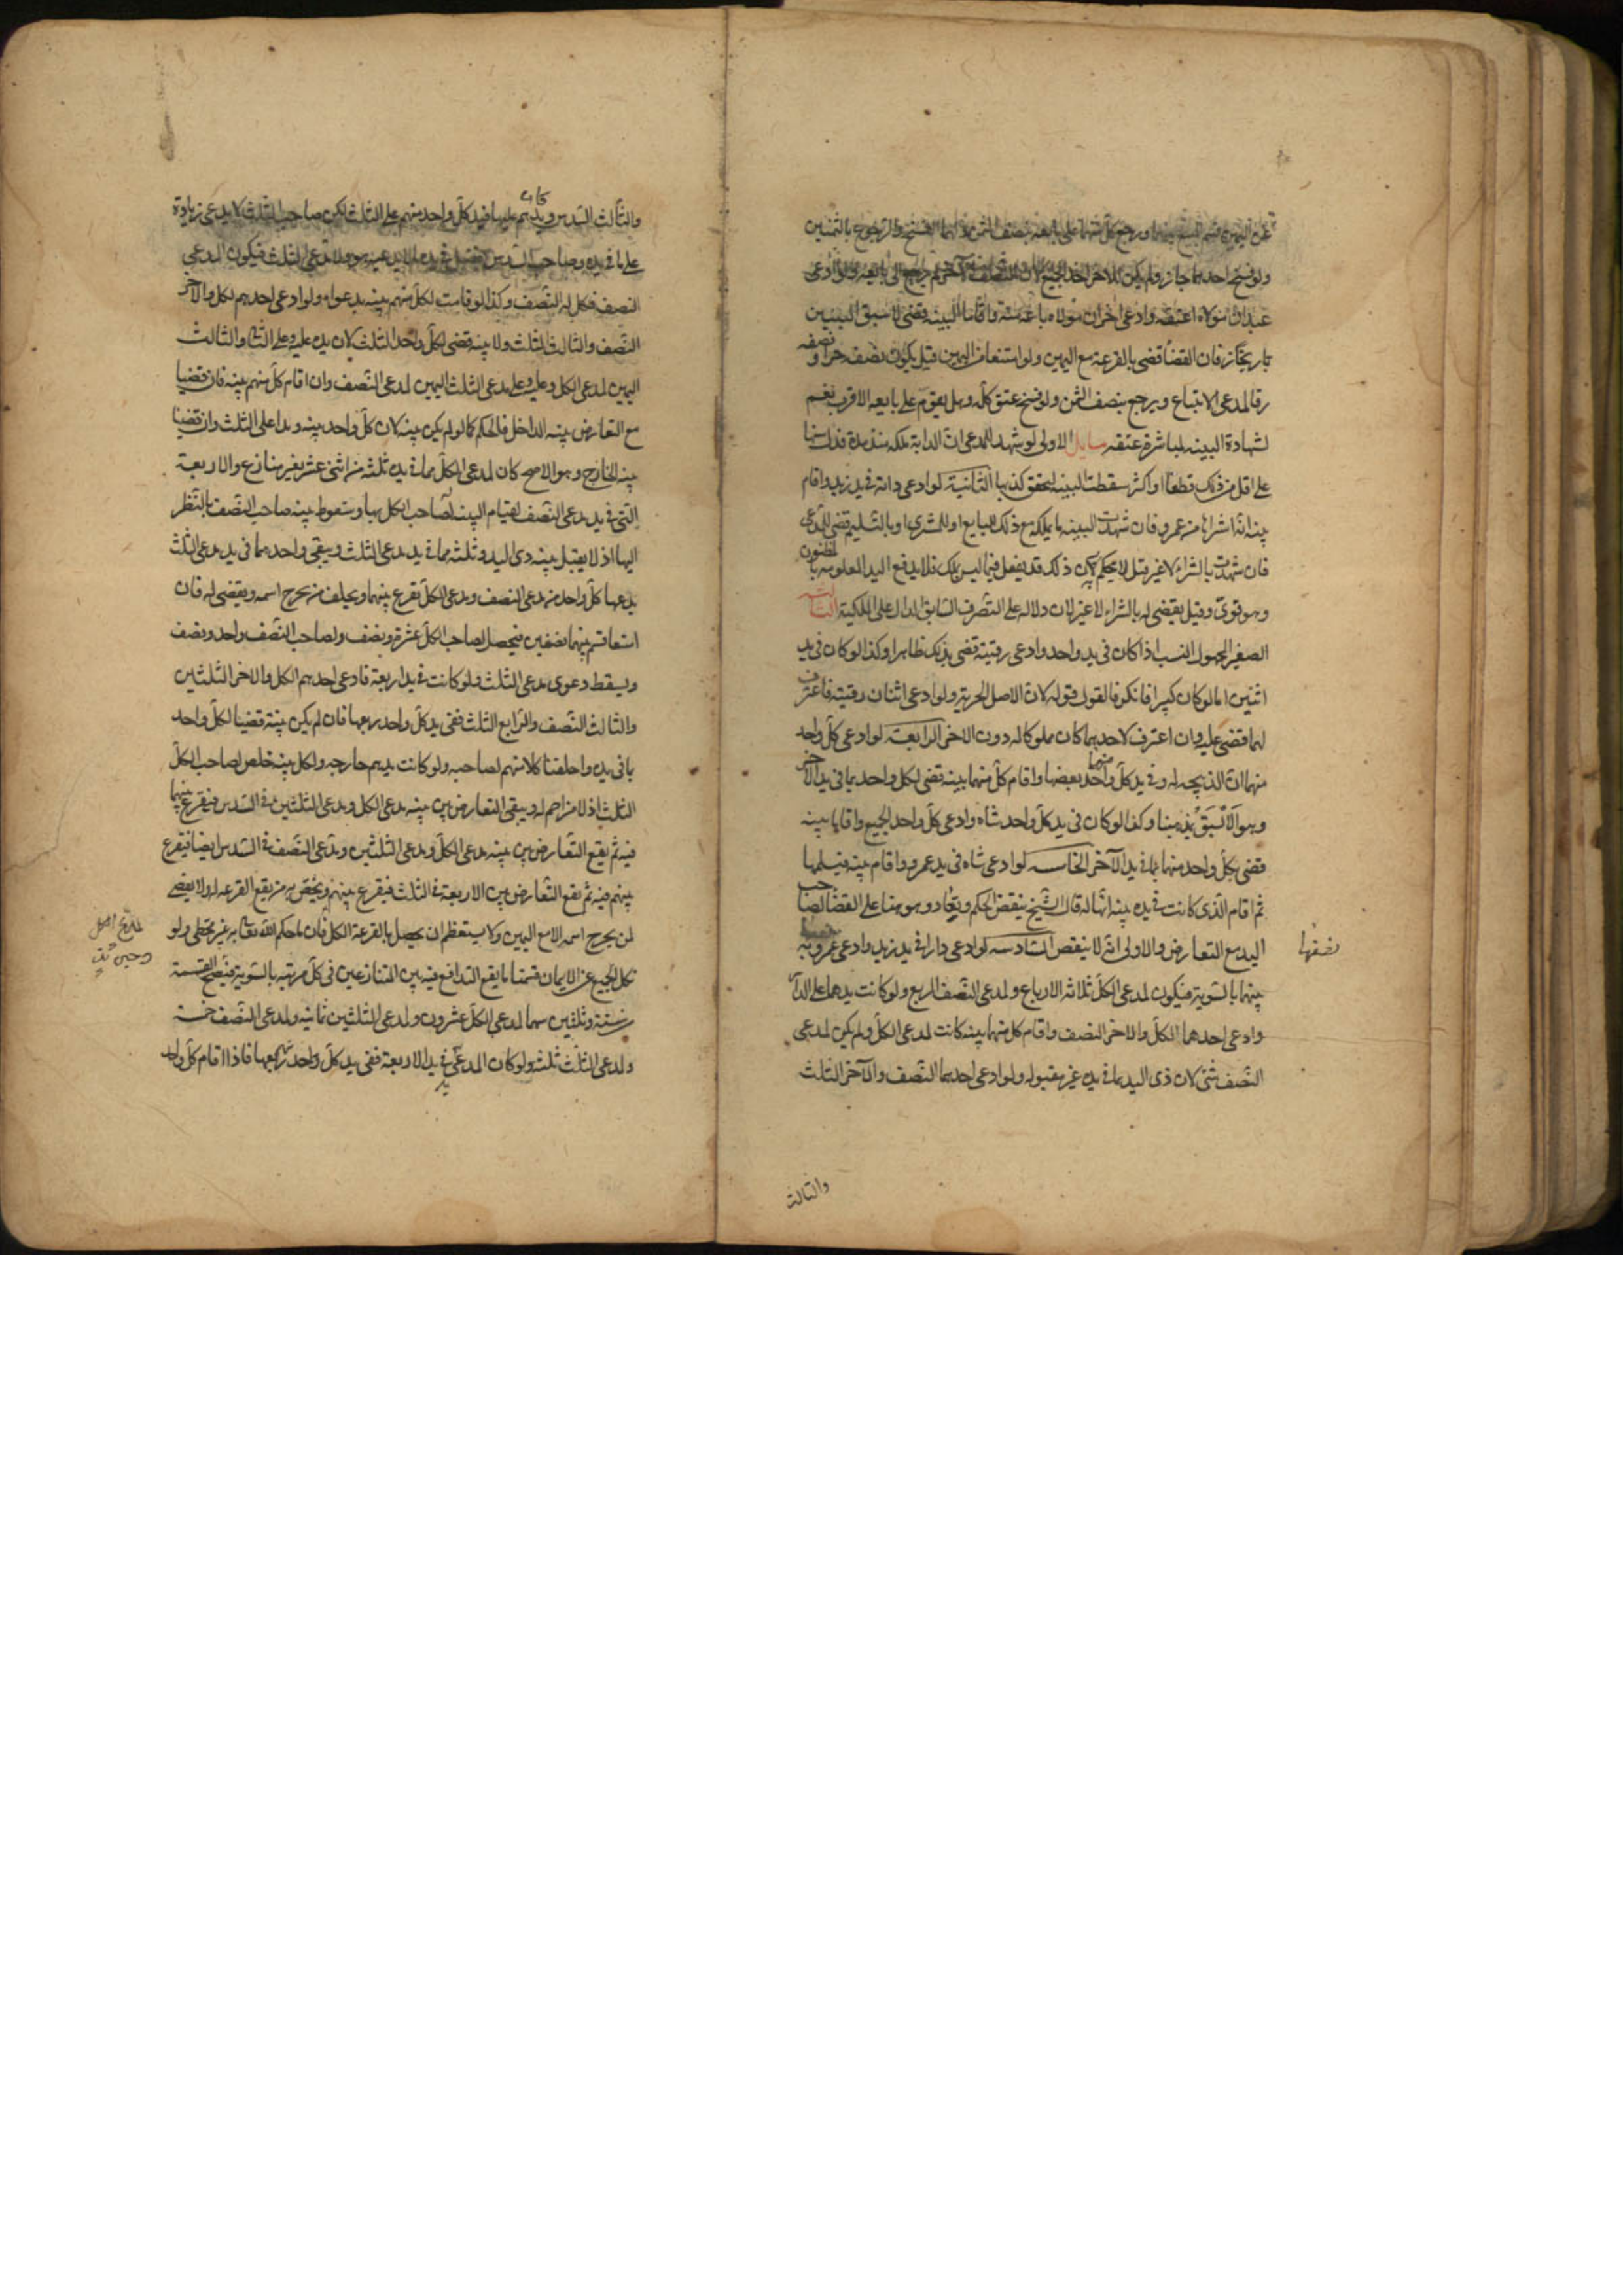 عن اليمين قسم المبيع بينهما ورجع كل منهما على بايعه بنصف الثمن ولهما الفسخ والرجوع بالثمنين
ولو فسخ احدهما جاز ولم يكن للآخر اخذ الجميع لان النصف الآخر لم يرجع الى بايعه ولو ادعى
عبد ان مولاه اعتقه وادعى آخر ان مولاه باعه منه واقاما البينة قضى لاسبق البينتين
تاريخا فان اتفقا قضى بالقرعة مع اليمين ولو امتنعا من اليمين قيل يكون نصفه حرا ونصفه
رقا لمدعى الابتياع ويرجع بنصف الثمن ولو فسخ عتق كله وهل يقوم على بايعه الاقرب نعم
لشهادة البينة بمباشرة عتقه مسايل الاولى لو شهد للمدعى ان الدابة ملكه منذ مدة فدلت سنها
على اقل من ذلك قطعا او اكثر سقطت البينة لتحقق كذبها الثانية لو ادعى دابة في يد زيد واقام
بينة انه اشتراها من عمرو فان شهدت البينة بالملكية مع ذلك للبايع او للمشترى او بالتسليم قضى للمدعى
فان شهدت بالشراء لا غير قيل لا يحكم لان ذلك قد يفعل فيما ليس بملك فلا يدفع اليد المعلومة بالمظنون
وهو قوى وقيل يقضى له بالشراء لا غير لان دلالة على التصرف السابق الدال على الملكية الثالثة
الصغير المجهول النسب اذا كان في يد واحد وادعى رقيته قضى بذلك ظاهرا وكذا لو كان في يد
اثنين اما لو كان كبيرا فانكر فالقول قوله لان الاصل الحرية ولو ادعى اثنان رقيته فاعترف
لهما قضى عليه وان اعترف لاحدهما كان مملوكا له دون الآخر الرابعة لو ادعى كل واحد
منهما ان الذبيحة له وفي يد كل واحد منهما بعضها واقام كل منهما بينة قضى لكل واحد بما في يد الآخر
وهو الاليق بمذهبنا وكذا لو كان في يد كل واحد شاة وادعى كل واحد الجميع واقاما بينة
قضى لكل واحد منهما بما في يد الآخر الخامسة لو ادعى شاة في يد عمرو واقام بينة فتسلمها
ثم اقام الذى كانت في يده بينة انها له قال الشيخ ينقض الحكم ويعاد وهو بناء على القضا لصاحب
اليد مع التعارض والاولى انه لا ينقض السادسة لو ادعى دارا في يد زيد وادعى عمرو
نصفها
بينهما بالسوية فيكون لمدعى الكل ثلاثة الارباع ولمدعى النصف الربع ولو كانت يدهما على الدار
وادعى احدهما الكل والآخر النصف واقام كل منهما بينة كانت لمدعى الكل ولم يكن لمدعى
النصف شئ لان ذى اليد بما في يده غير مقبولة ولو ادعى احدهما النصف والآخر الثلث
والثالث
والثالث السدس ويدهم عليها فيد كل واحد منهم على الثلث لكن صاحب الثلث لا يدعى زيادة
على ما في يده وصاحب السدس يفضل في يده ما لا يدعيه هو ولا مدعى الثلث فيكون لمدعى
النصف فيكمل له النصف وكذا لو قامت لكل منهم بينة بدعواه ولو ادعى احدهم الكل والآخر
النصف والثالث الثلث ولا بينة قضى لكل واحد الثلث لان يده عليه وعلى الثانى والثالث
اليمين لمدعى الكل وعليه وعلى مدعى الثلث اليمين لمدعى النصف وان اقام كل منهم بينة فان قضينا
مع التعارض ببينة الداخل فالحكم كما لو لم يكن بينة لان لكل واحد بينة ويدا على الثلث وان قضينا
ببينة الخارج وهو الاصح كان لمدعى الكل مما في يده ثلثة من اثنى عشر بغير منازع والاربعة
التى في يد مدعى النصف لقيام البينة لصاحب الكل بها وسقوط بينة صاحب النصف بالنظر
اليها اذ لا يقبل بينة ذى اليد وثلثة مما في يد مدعى الثلث ويبقى واحد مما في يد مدعى الثلث
يدعيها كل واحد من مدعى النصف ومدعى الكل يقرع بينهما ويحلف من يخرج اسمه ويقضى له فان
امتنعا قسم بينهما نصفين فيحصل لصاحب الكل عشرة ونصف ولصاحب النصف واحد ونصف
ويسقط دعوى مدعى الثلث ولو كانت في يد اربعة فادعى احدهم الكل والآخر الثلثين
والثالث النصف والرابع الثلث ففى يد كل واحد ربعها فان لم يكن بينة قضينا لكل واحد
بما في يده واحلفنا كلا منهم لصاحبه ولو كانت يدهم خارجة ولكل بينة خلص لصاحب الكل
الثلث اذ لا مزاحم له ويبقى التعارض بين بينة مدعى الكل ومدعى الثلثين في السدس فيقرع بينهما
فيه ثم يقع التعارض بين بينة مدعى الكل ومدعى الثلثين ومدعى النصف في السدس ايضا فيقرع
بينهم فيه ثم يقع التعارض بين الاربعة في الثلث فيقرع بينهم ويخص به من يقع القرعة له ولا يقضى
لمن يخرج اسمه الا مع اليمين ولا يستعظم ان يحصل بالقرعة الكل فان ما حكم الله تعالى به غير مخطى ولو
نكل الجميع عن الايمان قسمنا ما يقع التدافع فيه بين المتنازعين في كل مرتبة بالسوية فيصح القسمة
من ستة وثلثين سهما لمدعى الكل عشرون ولمدعى الثلثين ثمانية ولمدعى النصف خمسة
ولمدعى الثلث ثلثة ولو كان المدعى في يد الاربعة ففى يد كل واحد ربعها فاذا اقام كل واحد